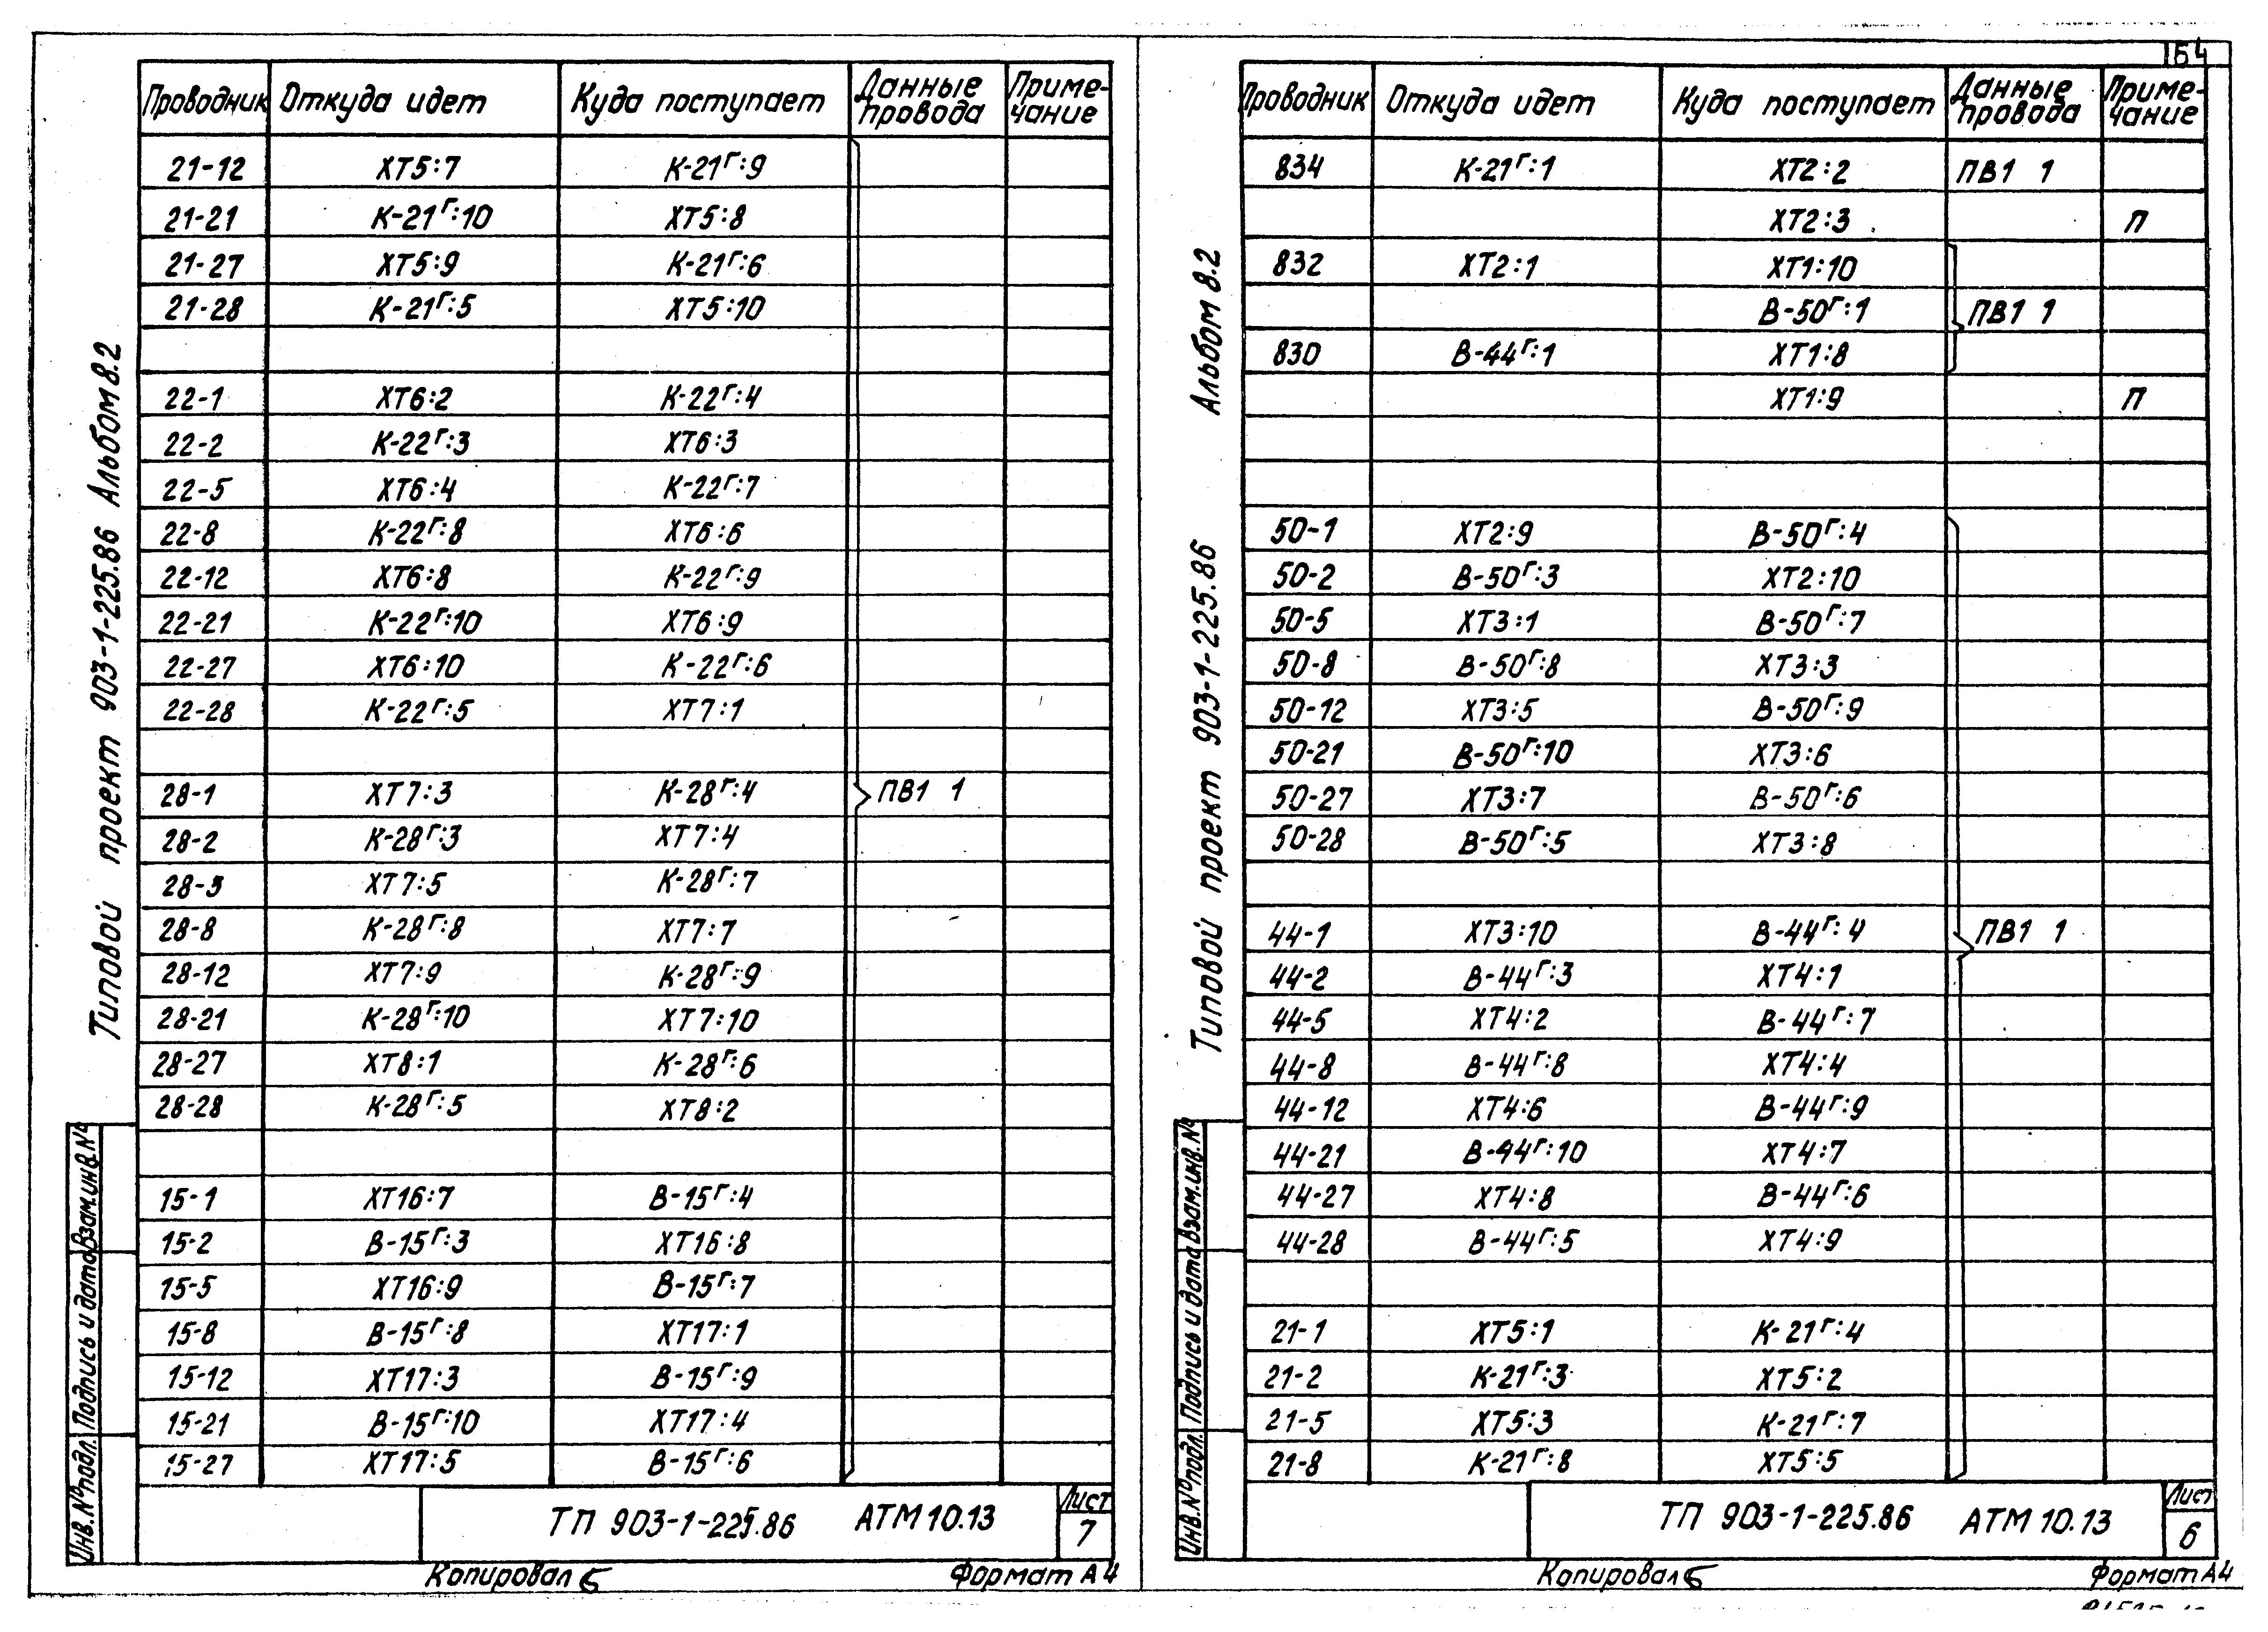 Типовой проект 903-1-225.86 Альбом 8.2
Проводник Откуда идет Куда поступает Данные провода Приме-чание
21-12 ХТ5:7 К-21Г:9
21-21 К-21Г:10 ХТ5:8
21-27 ХТ5:9 К-21Г:6
21-28 К-21Г:5 ХТ5:10
22-1 ХТ6:2 К-22Г:4
22-2 К-22Г:3 ХТ6:3
22-5 ХТ6:4 К-22Г:7
22-8 К-22Г:8 ХТ6:6
22-12 ХТ6:8 К-22Г:9
22-21 К-22Г:10 ХТ6:9
22-27 ХТ6:10 К-22Г:6
22-28 К-22Г:5 ХТ7:1
28-1 ХТ7:3 К-28Г:4 ПВ1 1
28-2 К-28Г:3 ХТ7:4
28-5 ХТ7:5 К-28Г:7
28-8 К-28Г:8 ХТ7:7
28-12 ХТ7:9 К-28Г:9
28-21 К-28Г:10 ХТ7:10
28-27 ХТ8:1 К-28Г:6
28-28 К-28Г:5 ХТ8:2
15-1 ХТ16:7 В-15Г:4
15-2 В-15Г:3 ХТ16:8
15-5 ХТ16:9 В-15Г:7
15-8 В-15Г:8 ХТ17:1
15-12 ХТ17:3 В-15Г:9
15-21 В-15Г:10 ХТ17:4
15-27 ХТ17:5 В-15Г:6
Инв.№подл. Подпись и дата Взам.инв.№
ТП 903-1-225.86 АТМ10.13
Лист
7
Копировал
Формат А4
Типовой проект 903-1-225.86 Альбом 8.2
Проводник Откуда идет Куда поступает Данные провода Приме-чание
834 К-21Г:1 ХТ2:2 ПВ1 1
ХТ2:3 П
832 ХТ2:1 ХТ1:10
В-50Г:1 ПВ1 1
830 В-44Г:1 ХТ1:8
ХТ1:9 П
50-1 ХТ2:9 В-50Г:4
50-2 В-50Г:3 ХТ2:10
50-5 ХТ3:1 В-50Г:7
50-8 В-50Г:8 ХТ3:3
50-12 ХТ3:5 В-50Г:9
50-21 В-50Г:10 ХТ3:6
50-27 ХТ3:7 В-50Г:6
50-28 В-50Г:5 ХТ3:8
44-1 ХТ3:10 В-44Г:4 ПВ1 1
44-2 В-44Г:3 ХТ4:1
44-5 ХТ4:2 В-44Г:7
44-8 В-44Г:8 ХТ4:4
44-12 ХТ4:6 В-44Г:9
44-21 В-44Г:10 ХТ4:7
44-27 ХТ4:8 В-44Г:6
44-28 В-44Г:5 ХТ4:9
21-1 ХТ5:1 К-21Г:4
21-2 К-21Г:3 ХТ5:2
21-5 ХТ5:3 К-21Г:7
21-8 К-21Г:8 ХТ5:5
Инв.№подл. Подпись и дата Взам.инв.№
ТП 903-1-225.86 АТМ10.13
Лист
6
Копировал
Формат А4